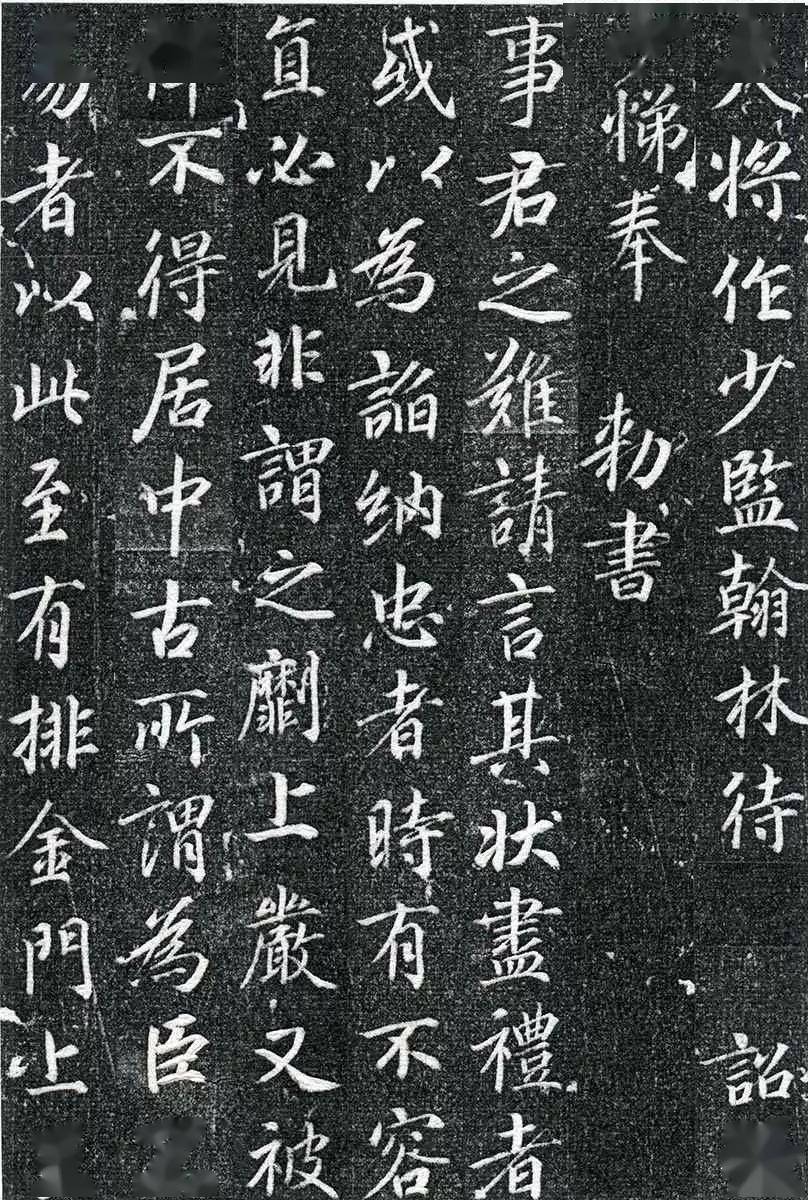 將作少監翰林待 詔
悌奉 勅書
事君之難請言其狀盡禮者
或以為諂納忠者時有不容
直必見非謂之劘上嚴又被
不得居中古所謂為臣
者以此至有排金門上